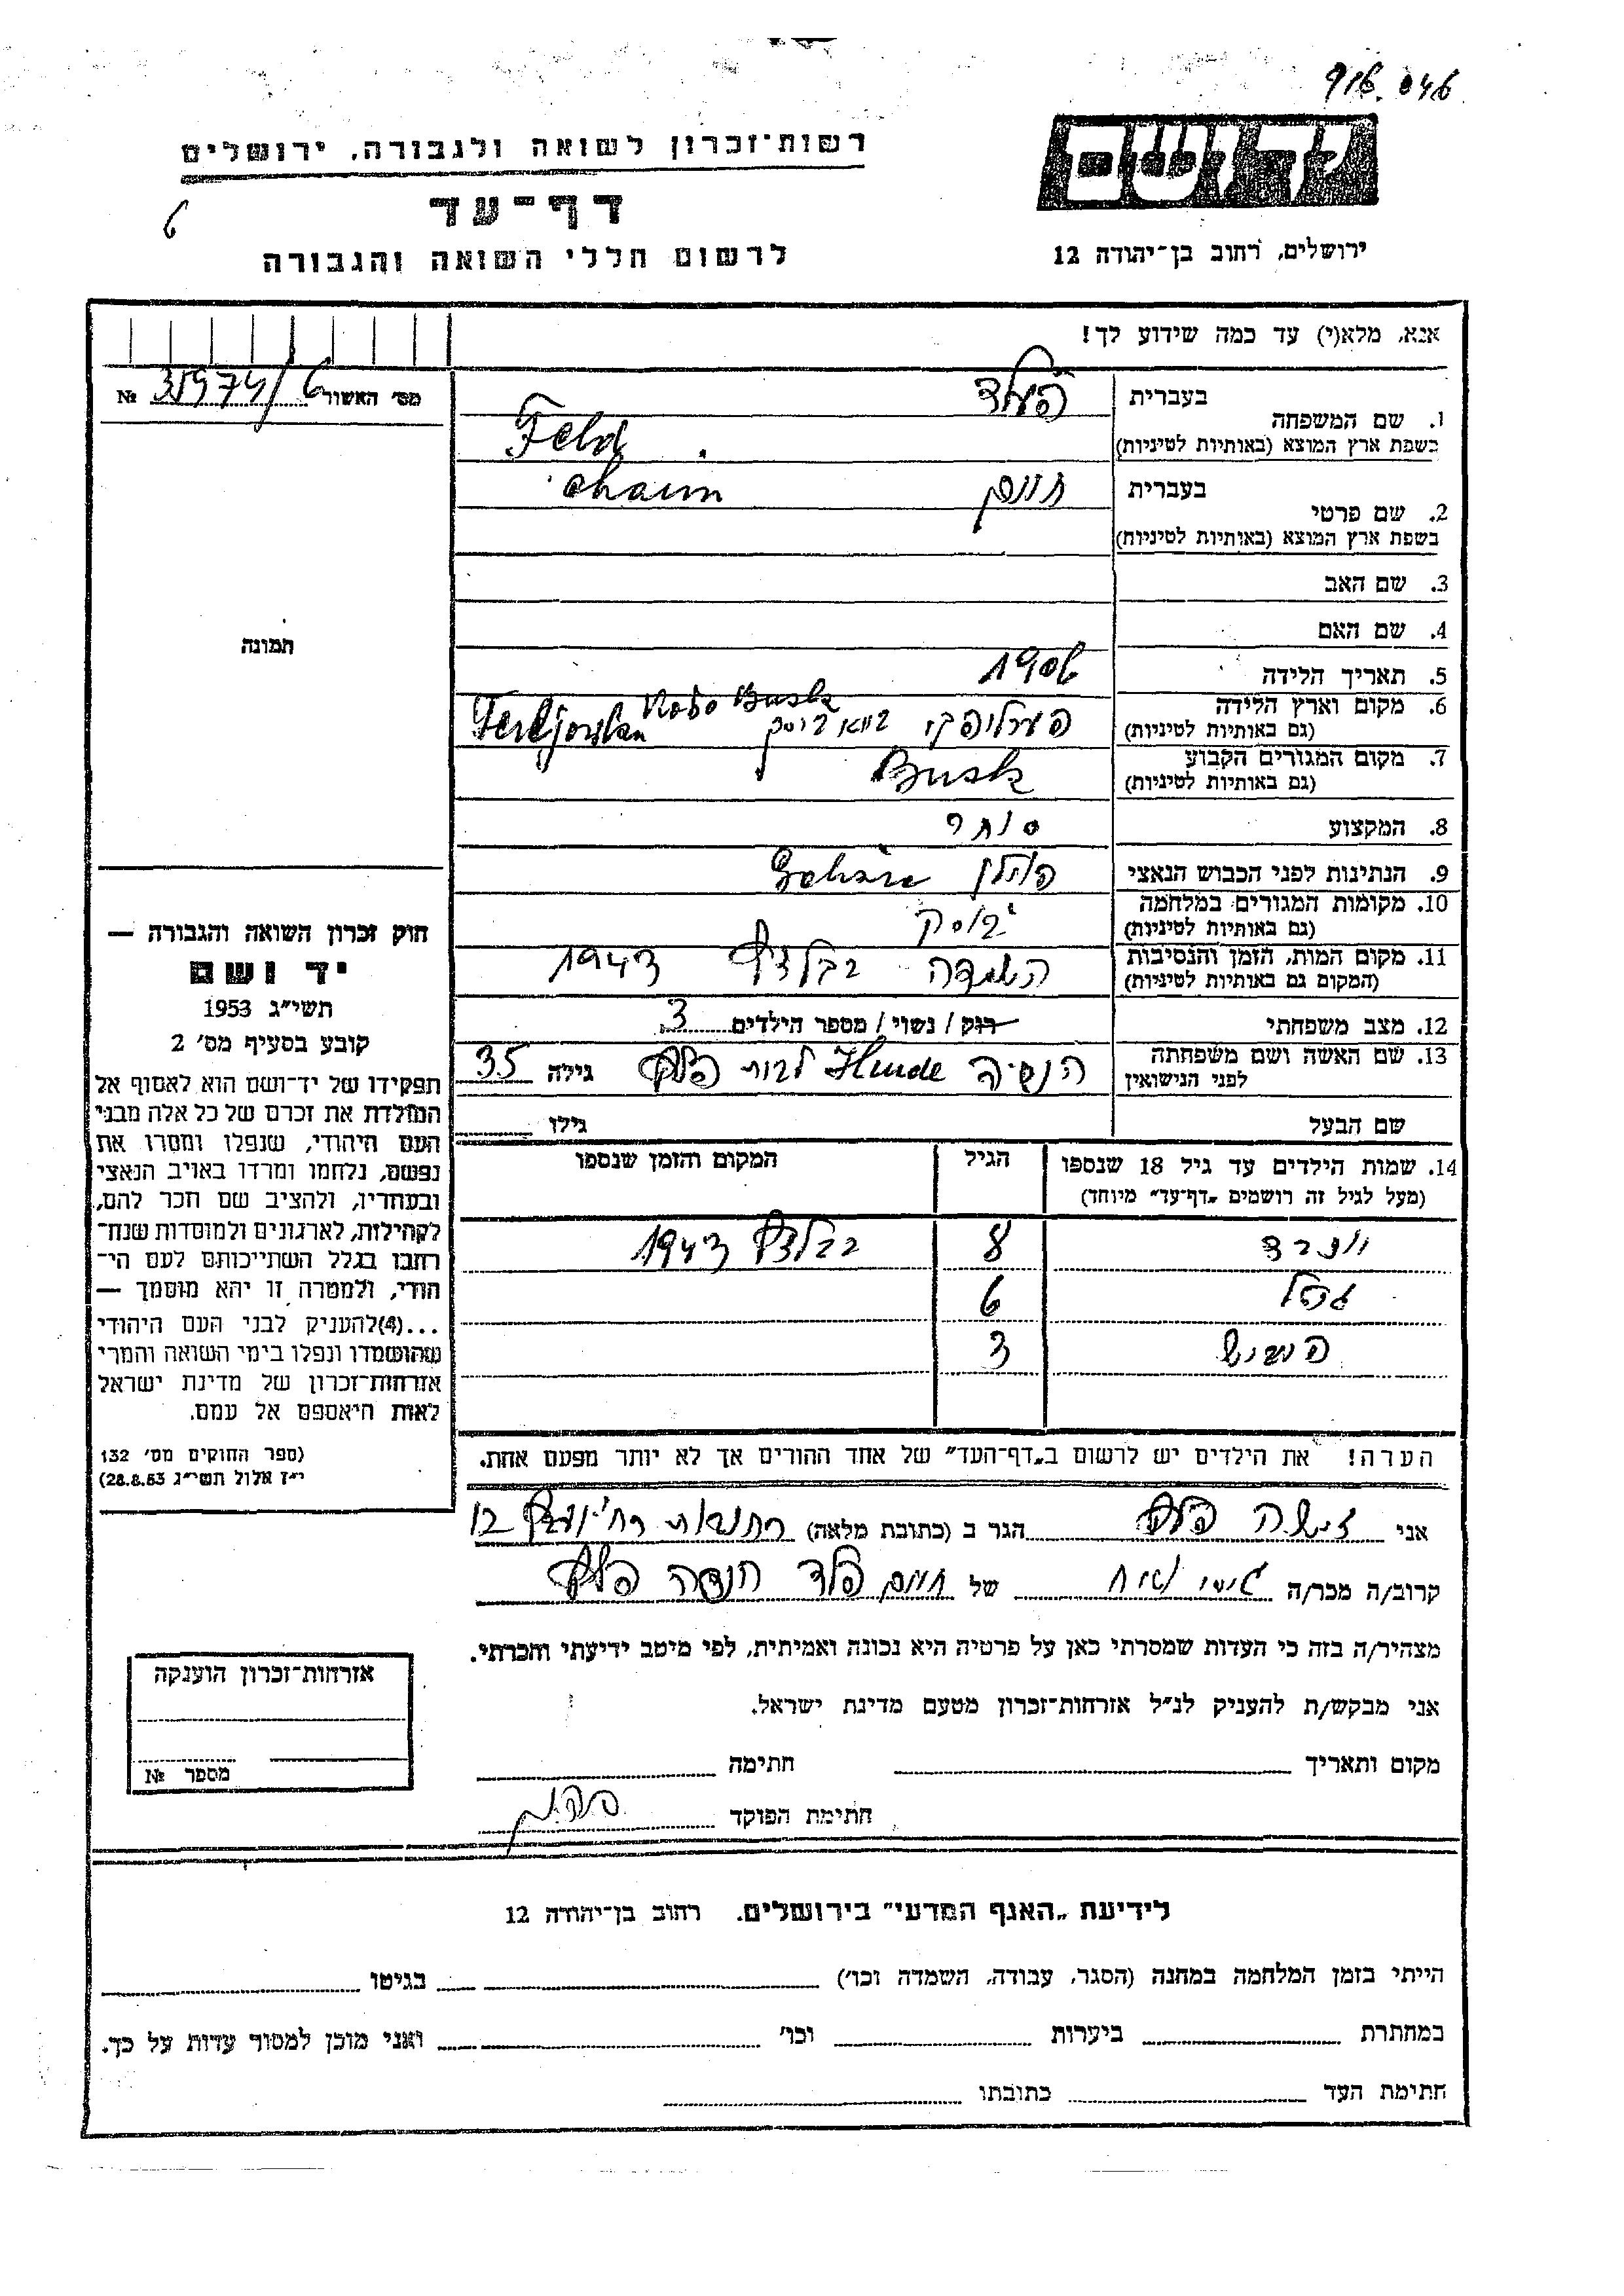 916.046
רשות־זכרון לשואה ולגבורה, ירושלים
דף־עד
לרשום חללי השואה והגבורה
6
יד ושם
ירושלים, רחוב בן־יהודה 12
אנא, מלא(י) עד כמה שידוע לך!
מס׳ האשור 35974/6 №
תמונה
1. שם המשפחה
בעברית פעלד
בשפת ארץ המוצא (באותיות לטיניות) Feld
2. שם פרטי
בעברית חיים chaim
בשפת ארץ המוצא (באותיות לטיניות)
3. שם האב
4. שם האם
5. תאריך הלידה 1906
6. מקום וארץ הלידה
(גם באותיות לטיניות) koło Busk
7. מקום המגורים הקבוע Busk
(גם באותיות לטיניות)
8. המקצוע סוחר
9. הנתינות לפני הכבוש הנאצי פולין
10. מקומות המגורים במלחמה בוסק
(גם באותיות לטיניות)
11. מקום המות, הזמן והנסיבות השמדה בבלזץ 1943
(המקום גם באותיות לטיניות)
12. מצב משפחתי רוק / נשוי / מספר הילדים 3
13. שם האשה ושם משפחתה
לפני הנישואין לבית גילה 35
שם הבעל גילו
14. שמות הילדים עד גיל 18 שנספו
(מעל לגיל זה רושמים „דף־עד״ מיוחד)
הגיל
המקום והזמן שנספו
8 בבלזץ 1943
6
3
הערה! את הילדים יש לרשום ב„דף־העד״ של אחד ההורים אך לא יותר מפעם אחת.
חוק זכרון השואה והגבורה —
יד ושם
תשי״ג 1953
קובע בסעיף מס׳ 2
תפקידו של יד־ושם הוא לאסוף אל
המולדת את זכרם של כל אלה מבני
העם היהודי, שנפלו ומסרו את
נפשם, נלחמו ומרדו באויב הנאצי
ובעוזריו, ולהציב שם וזכר להם,
לקהילות, לארגונים ולמוסדות שנח־
רבו בגלל השתייכותם לעם הי־
הודי, ולמטרה זו יהא מוסמך —
...(4)להעניק לבני העם היהודי
שהושמדו ונפלו בימי השואה והמרי
אזרחות־זכרון של מדינת ישראל
לאות היאספם אל עמם.
(ספר החוקים מס׳ 132
י״ז אלול תשי״ג 28.8.53)
אני הגר ב (כתובת מלאה) 12
קרוב/ה מכר/ה גיסו של חיים פלד
מצהיר/ה בזה כי העדות שמסרתי כאן על פרטיה היא נכונה ואמיתית, לפי מיטב ידיעתי והכרתי.
אני מבקש/ת להעניק לנ״ל אזרחות־זכרון מטעם מדינת ישראל.
מקום ותאריך חתימה
חתימת הפוקד
אזרחות־זכרון הוענקה
מספר №
לידיעת „האגף המדעי״ בירושלים. רחוב בן־יהודה 12
הייתי בזמן המלחמה במחנה (הסגר, עבודה, השמדה וכו׳) בגיטו
במחתרת ביערות וכו׳ ואני מוכן למסור עדות על כך.
חתימת העד כתובתו